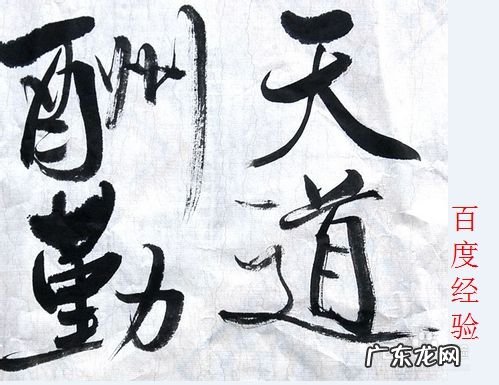 天道
酬勤
百度经验
广东龙网